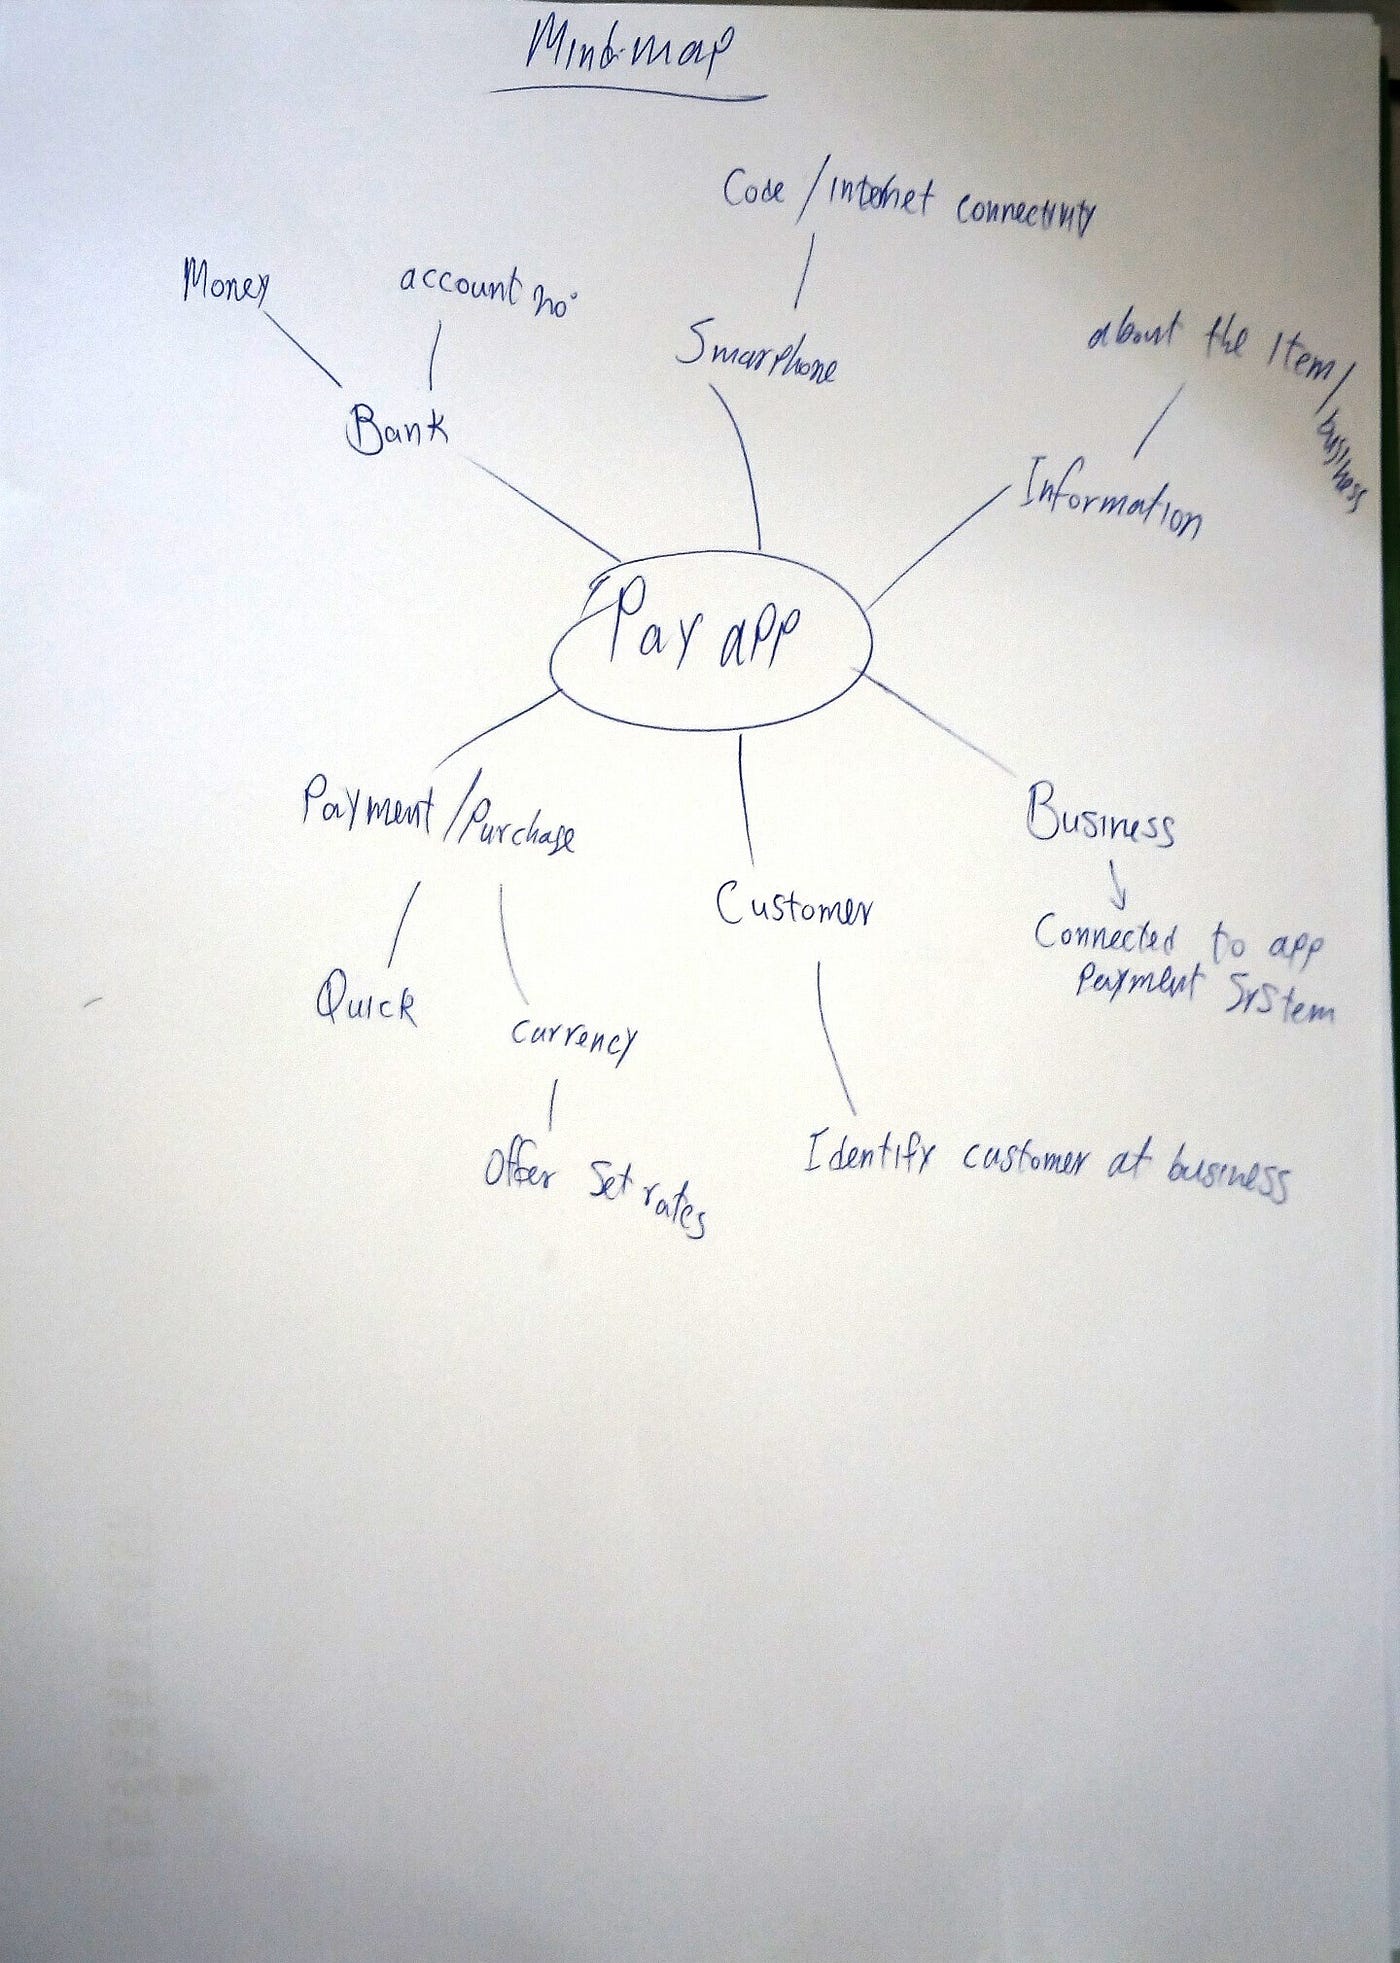 Mind-map
Code / internet connectivity
Money
account no
about the Item/
business
Smarphone
Bank
Information
Pay app
Payment / Purchase
Business
Customer
Connected to app
Payment System
Quick
currency
Offer Set rates
Identify customer at business